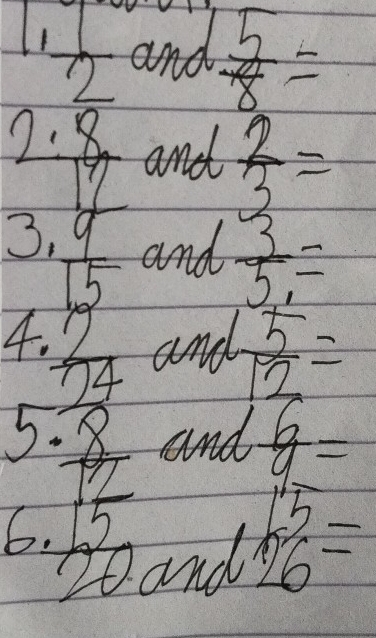 1. 1/2 and 5/8 =
2. 8/12 and 2/3 =
3. 9/15 and 3/5. =
4. 2/24 and 5/12 =
5. 8/12 and 6/9 =
6. 15/20 and 15/26 =